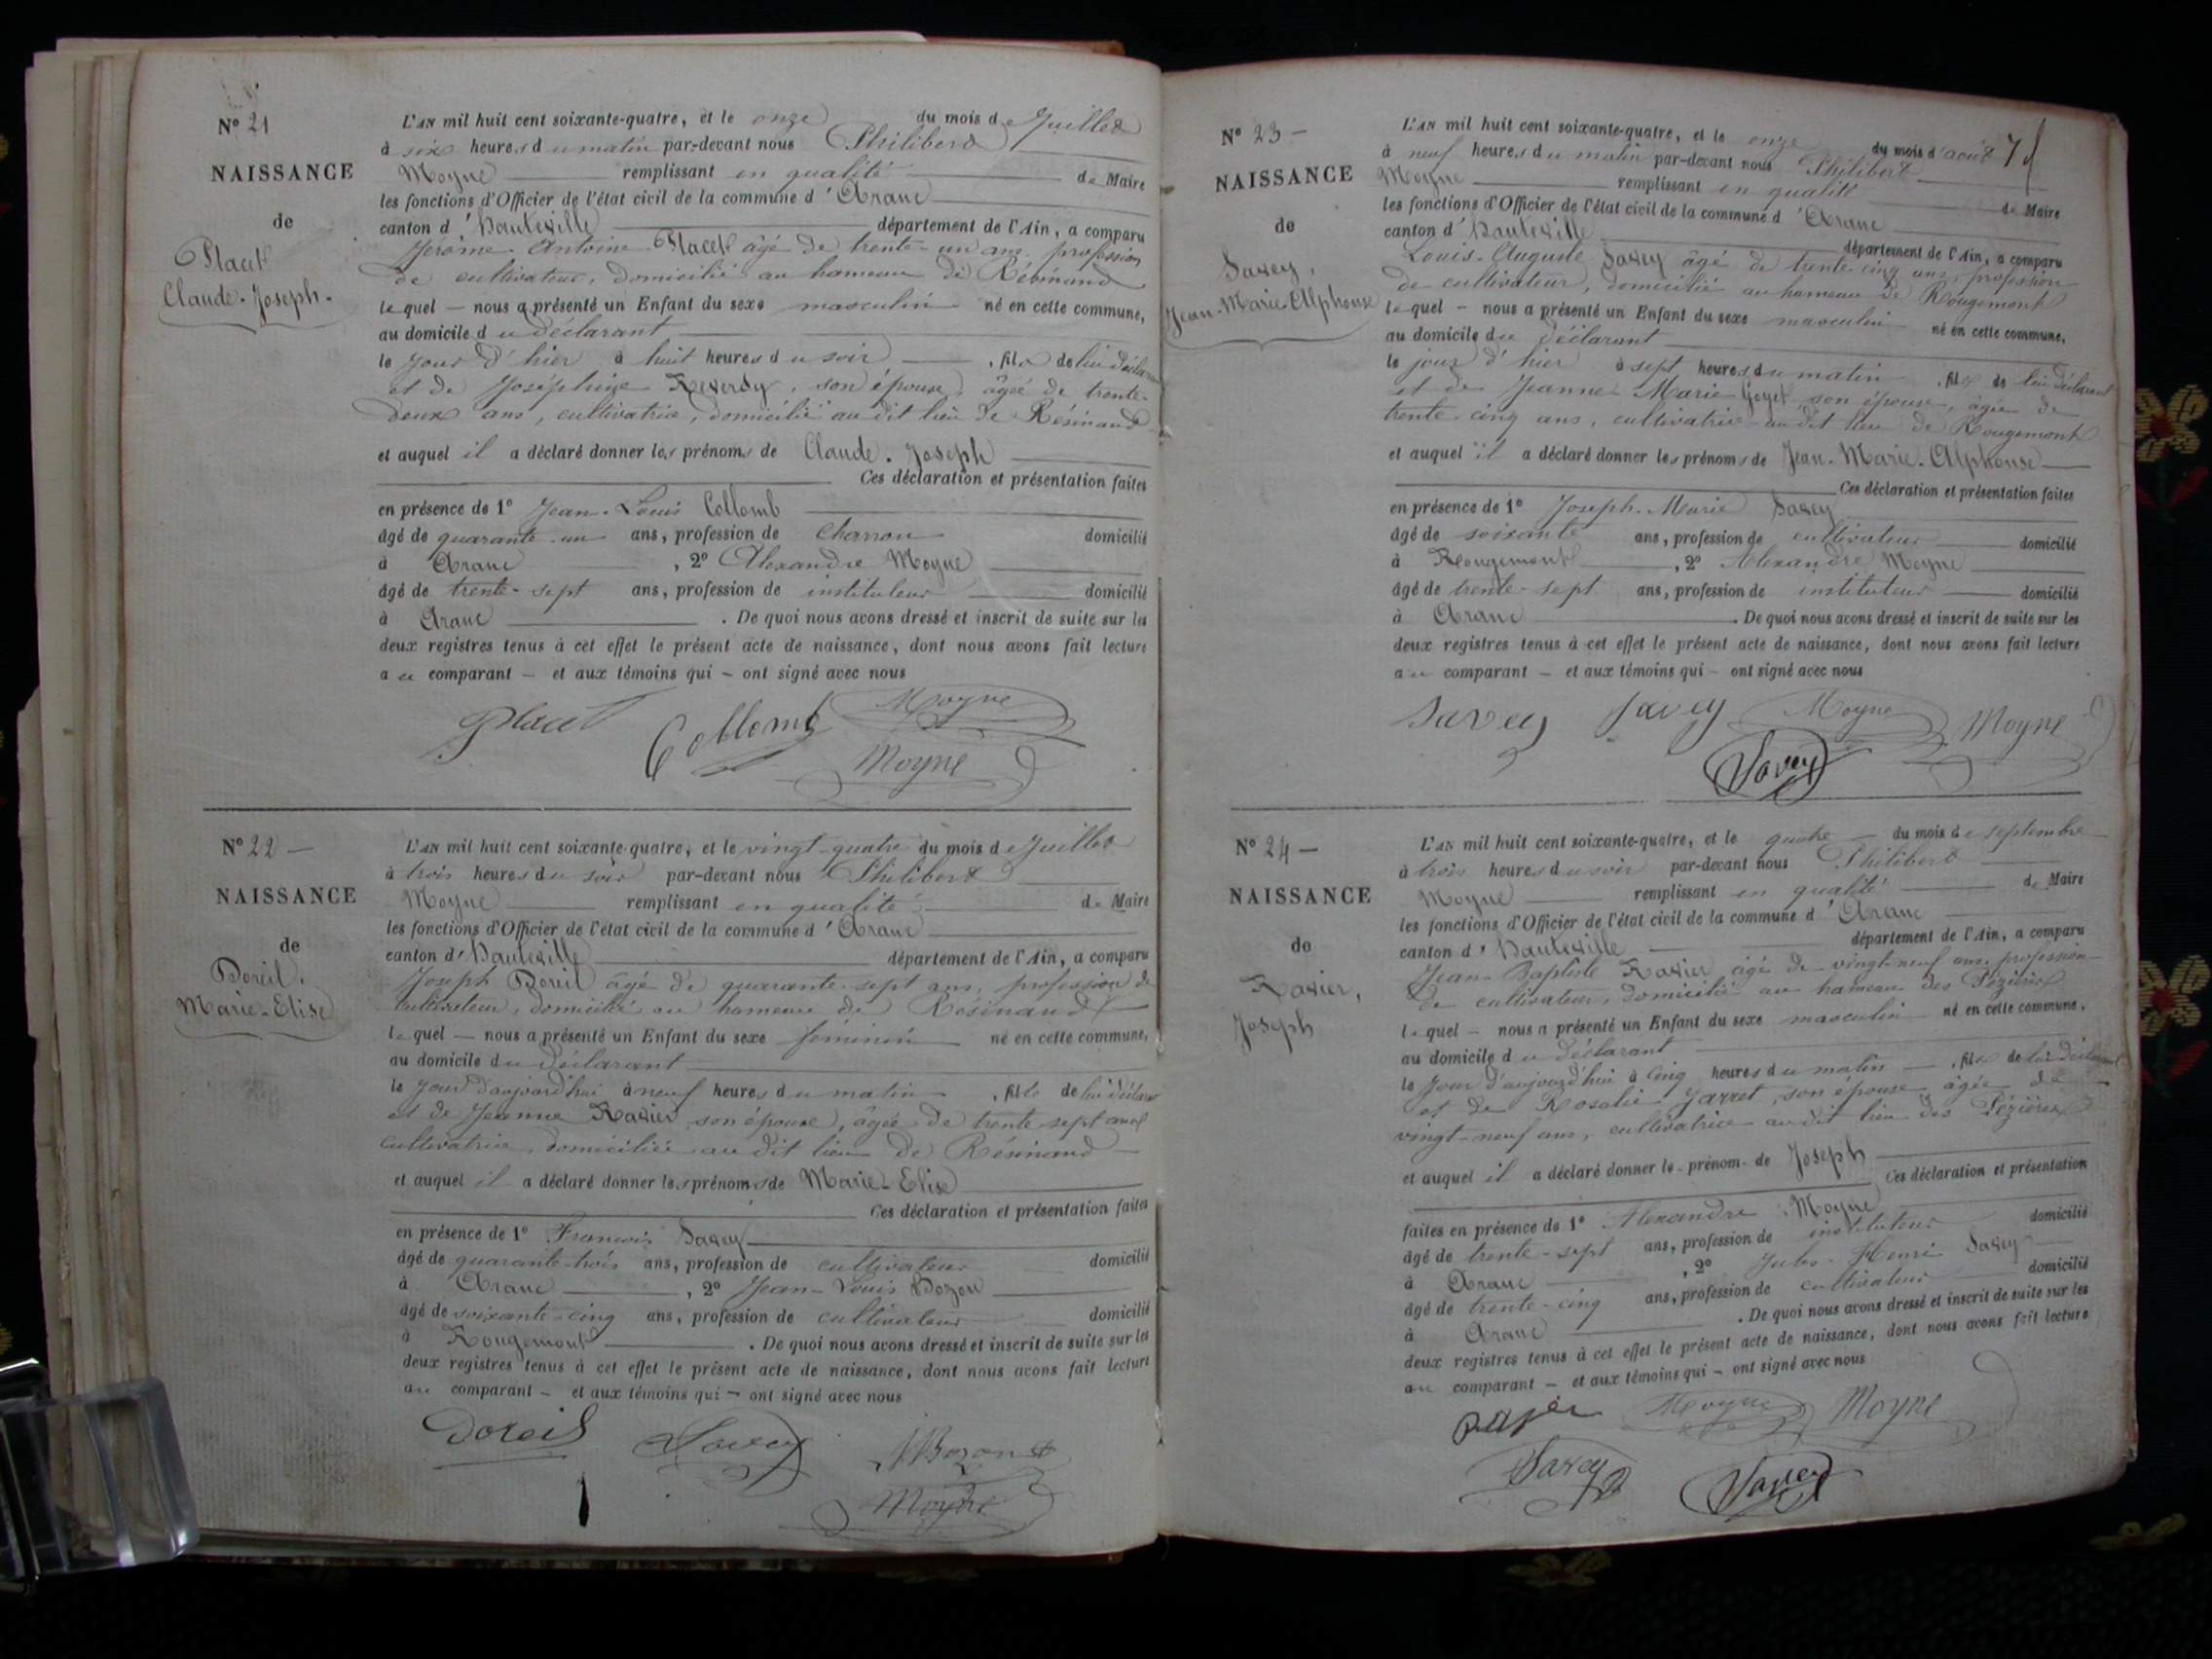 N° 21
NAISSANCE
de
Placet
Claude-Joseph.
L'AN mil huit cent soixante-quatre, et le onze du mois de Juillet
à six heures du matin par-devant nous Philibert
Moyne remplissant en qualité de Maire
les fonctions d'Officier de l'état civil de la commune d'Aranc
canton d'Hauteville département de l'Ain, a comparu
Jérôme Antoine Placet âgé de trente-un ans, profession
de cultivateur, domicilié au hameau de Résinand
lequel — nous a présenté un Enfant du sexe masculin né en cette commune,
au domicile du déclarant
le jour d'hier à huit heures du soir, fils de lui déclarant
et de Joséphine Reverdy, son épouse, âgée de trente-
deux ans, cultivatrice, domiciliée audit lieu de Résinand
et auquel il a déclaré donner les prénoms de Claude-Joseph
Ces déclaration et présentation faites
en présence de 1° Jean-Louis Collomb
âgé de quarante-un ans, profession de charron domicilié
à Aranc, 2° Alexandre Moyne
âgé de trente-sept ans, profession de instituteur domicilié
à Aranc. De quoi nous avons dressé et inscrit de suite sur les
deux registres tenus à cet effet le présent acte de naissance, dont nous avons fait lecture
au comparant — et aux témoins qui — ont signé avec nous
Placet Collomb Moyne
Moyne
N° 22 —
NAISSANCE
de
Doreil.
Marie-Elise
L'AN mil huit cent soixante-quatre, et le vingt-quatre du mois de Juillet
à trois heures du soir par-devant nous Philibert
Moyne remplissant en qualité de Maire
les fonctions d'Officier de l'état civil de la commune d'Aranc
canton d'Hauteville département de l'Ain, a comparu
Joseph Doreil âgé de quarante-sept ans, profession de
cultivateur, domicilié au hameau de Résinand
lequel — nous a présenté un Enfant du sexe féminin né en cette commune,
au domicile du déclarant
le jour d'aujourd'hui à neuf heures du matin, fille de lui déclarant
et de Jeanne Ravier son épouse, âgée de trente-sept ans
cultivatrice, domiciliée audit lieu de Résinand
et auquel il a déclaré donner les prénoms de Marie-Elise
Ces déclaration et présentation faites
en présence de 1° François Savey
âgé de quarante-trois ans, profession de cultivateur domicilié
à Aranc, 2° Jean-Louis Bozon
âgé de soixante-cinq ans, profession de cultivateur domicilié
à Rougemont. De quoi nous avons dressé et inscrit de suite sur les
deux registres tenus à cet effet le présent acte de naissance, dont nous avons fait lecture
au comparant — et aux témoins qui — ont signé avec nous
Doreil Savey Bozon
Moyne
N° 23 —
NAISSANCE
de
Savey,
Jean-Marie-Alphonse
L'AN mil huit cent soixante-quatre, et le onze du mois d'août
à neuf heures du matin par-devant nous Philibert
Moyne remplissant en qualité de Maire
les fonctions d'Officier de l'état civil de la commune d'Aranc
canton d'Hauteville département de l'Ain, a comparu
Louis-Auguste Savey âgé de trente-cinq ans, profession
de cultivateur, domicilié au hameau de Rougemont
lequel — nous a présenté un Enfant du sexe masculin né en cette commune,
au domicile du déclarant
le jour d'hier à sept heures du matin, fils de lui déclarant
et de Jeanne Marie Goyet son épouse, âgée de
trente-cinq ans, cultivatrice audit lieu de Rougemont
et auquel il a déclaré donner les prénoms de Jean-Marie-Alphonse
Ces déclaration et présentation faites
en présence de 1° Joseph-Marie Savey
âgé de soixante ans, profession de cultivateur domicilié
à Rougemont, 2° Alexandre Moyne
âgé de trente-sept ans, profession de instituteur domicilié
à Aranc. De quoi nous avons dressé et inscrit de suite sur les
deux registres tenus à cet effet le présent acte de naissance, dont nous avons fait lecture
au comparant — et aux témoins qui — ont signé avec nous
Savey Savey Moyne Moyne
Savey
N° 24 —
NAISSANCE
de
Ravier,
Joseph
L'AN mil huit cent soixante-quatre, et le quatre du mois de septembre
à trois heures du soir par-devant nous Philibert
Moyne remplissant en qualité de Maire
les fonctions d'Officier de l'état civil de la commune d'Aranc
canton d'Hauteville département de l'Ain, a comparu
Jean-Baptiste Ravier âgé de vingt-neuf ans, profession
de cultivateur, domicilié au hameau des Pézières
lequel — nous a présenté un Enfant du sexe masculin né en cette commune,
au domicile du déclarant
le jour d'aujourd'hui à cinq heures du matin —, fils de lui déclarant
et de Rosalie Jarret, son épouse âgée de
vingt-neuf ans, cultivatrice audit lieu des Pézières
et auquel il a déclaré donner le prénom de Joseph
Ces déclaration et présentation
faites en présence de 1° Alexandre Moyne
âgé de trente-sept ans, profession de instituteur domicilié
à Aranc, 2° Jules-Henri Savey
âgé de trente-cinq ans, profession de cultivateur domicilié
à Aranc. De quoi nous avons dressé et inscrit de suite sur les
deux registres tenus à cet effet le présent acte de naissance, dont nous avons fait lecture
au comparant — et aux témoins qui — ont signé avec nous
ravier Moyne Moyne
Savey Savey